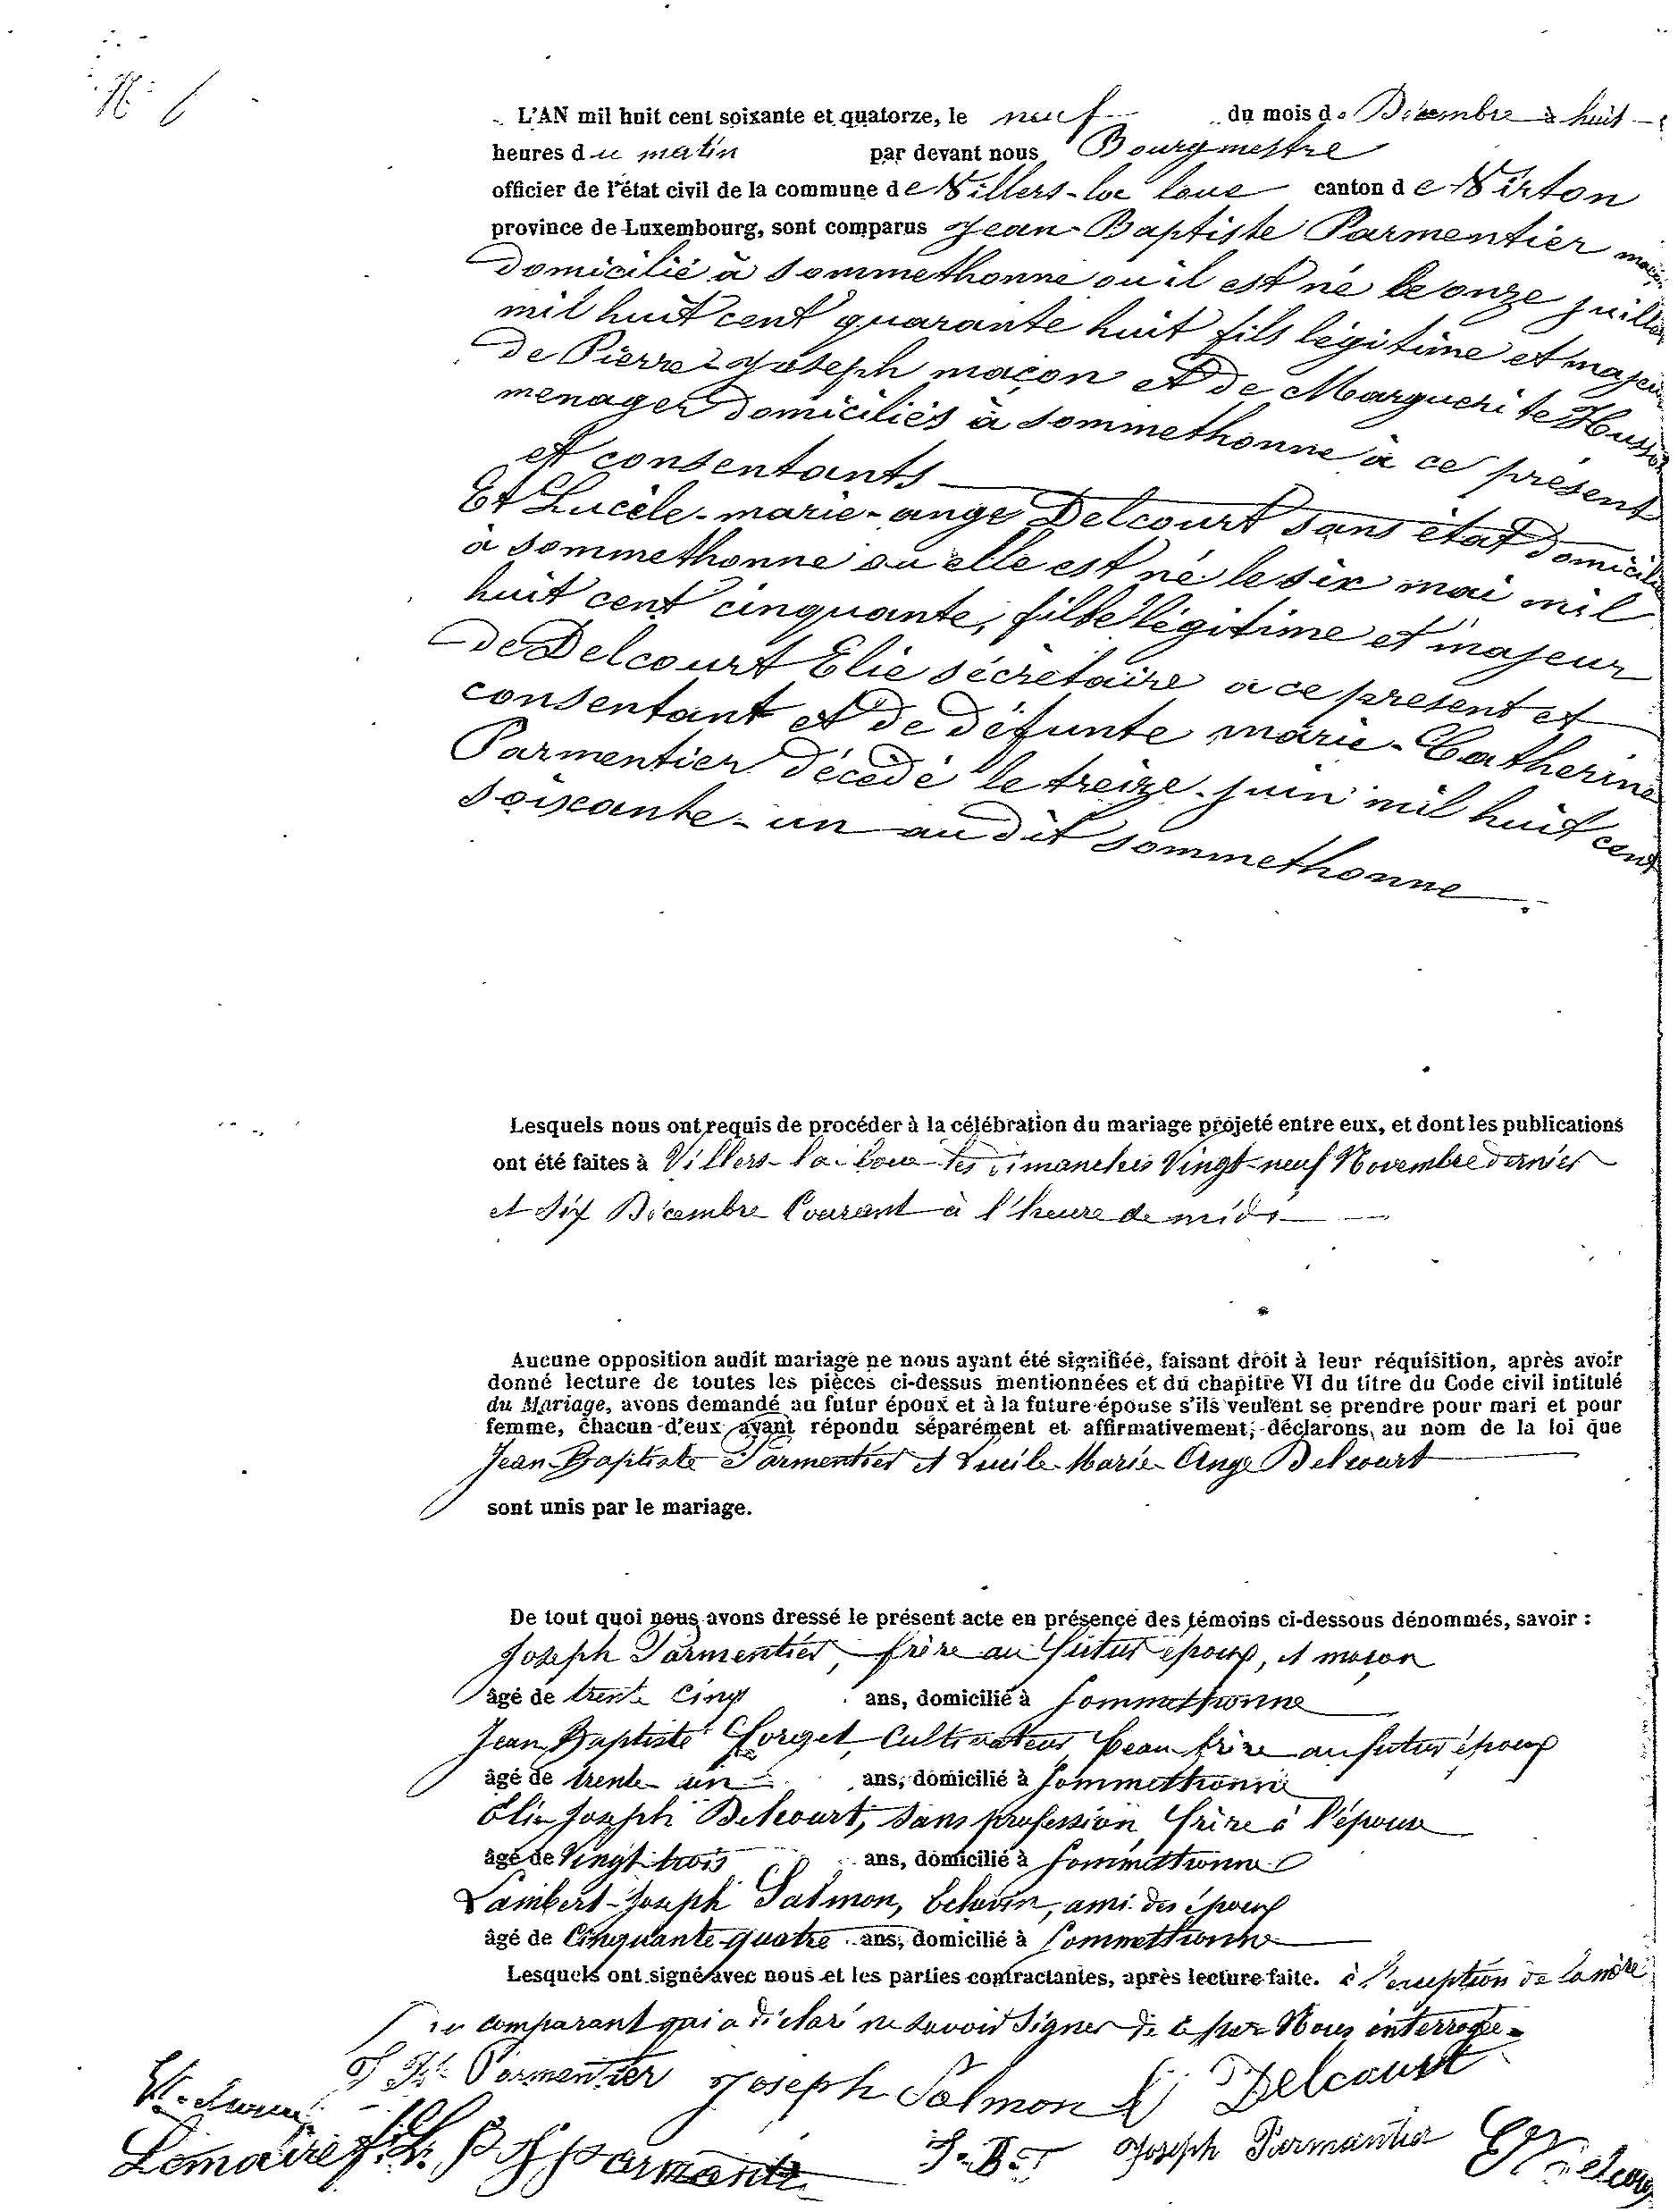 N° 6
L'AN mil huit cent soixante et quatorze, le neuf du mois de Décembre à huit
heures du matin par devant nous Bourgmestre
officier de l'état civil de la commune de Villers-la loue canton de Virton
province de Luxembourg, sont comparus Jean-Baptiste Parmentier maçon
domicilié à sommethonne ou il est né le onze juillet
mil huit cent quarante huit fils légitime et majeur
de Pierre-Joseph maçon et de Marguerite Husson
menager domiciliés à sommethonne à ce présent
et consentants
Et Lucèle-marie-ange Delcourt sans état domicilié
à sommethonne ou elle est né le six mai mil
huit cent cinquante, fille légitime et majeur
de Delcourt Elie sécretaire a ce présent et
consentant et de défunte marie-Catherine
Parmentier décédé le treize juin mil huit cent
soixante-un au dit sommethonne
Lesquels nous ont requis de procéder à la célébration du mariage projeté entre eux, et dont les publications
ont été faites à Villers-la-loue les dimanches Vingt-neuf Novembre dernier
et Six Décembre Courant à l'heure de midi
Aucune opposition audit mariage ne nous ayant été signifiée, faisant droit à leur réquisition, après avoir
donné lecture de toutes les pièces ci-dessus mentionnées et du chapitre VI du titre du Code civil intitulé
du Mariage, avons demandé au futur époux et à la future épouse s'ils veulent se prendre pour mari et pour
femme, chacun d'eux ayant répondu séparément et affirmativement, déclarons, au nom de la loi que
Jean-Baptiste Parmentier et Lucile-Marie-Ange Delcourt
sont unis par le mariage.
De tout quoi nous avons dressé le présent acte en présence des témoins ci-dessous dénommés, savoir :
Joseph Parmentier, frère au futur époux, et maçon
âgé de trente cinq ans, domicilié à Sommethonne
Jean Baptiste Forget, Cultivateur, beau frère au futur époux
âgé de trente un ans, domicilié à Sommethonne
Elie Joseph Delcourt, sans profession, frère à l'épouse
âgé de Vingt trois ans, domicilié à Sommethonne
Lambert-Joseph Salmon, échevin, ami des époux
âgé de Cinquante-quatre ans, domicilié à Sommethonne
Lesquels ont signé avec nous et les parties contractantes, après lecture faite. à l'exception de la mère
du comparant qui a déclaré ne savoir signer de ce par Nous interrogée
J Bte Parmentier Joseph Salmon Delcourt
Lemaire J. B. F Joseph Parmantier